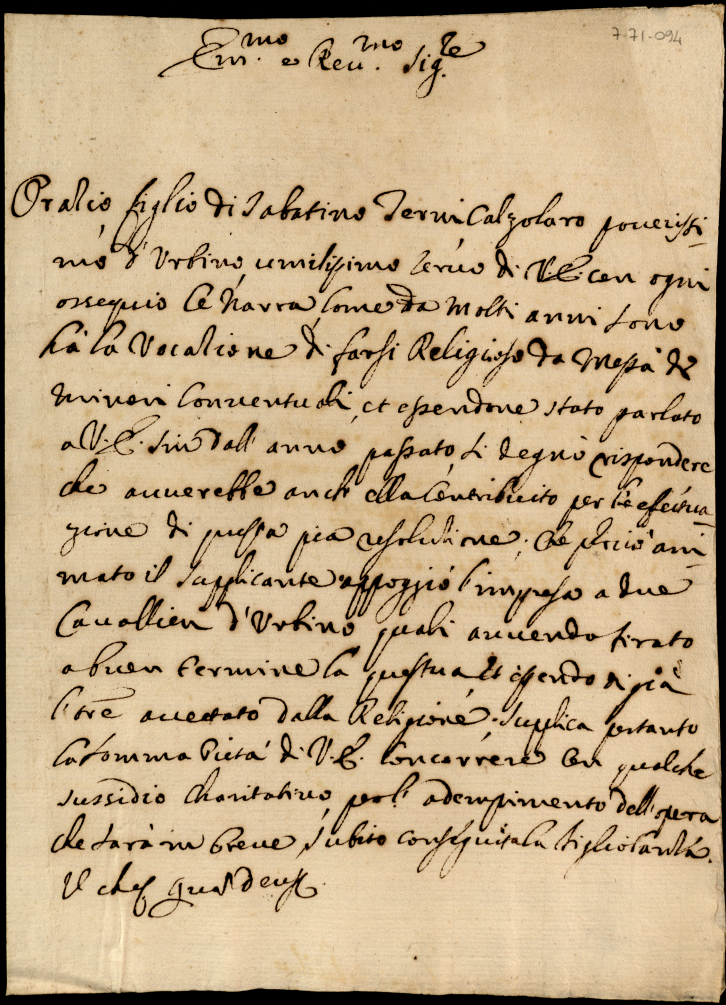 7-71-094
Em.mo e Reu.mo Sig.re
Oratio figlio di Sabatino Terni Calzolaro poverissi-
mo d'Urbino umilissimo servo di V.E. con ogni
ossequio le narra, come da molti anni sono
hà la Vocatione di farsi Religioso da Messa de
Minori Conventuali, et essendone stato parlato
a V.E. sin dall'anno passato, si degnò rispondere
che auuerebbe anch'ella Contribuito per l'effettua-
zione di questa pia resolutione; che perciò ani-
mato il supplicante appoggiò l'impresa a due
Cavallieri d'Urbino quali auuendo tirato
a buon termine la questua et essendo di già
l'Ore accettato dalla Religione. Supplica pertanto
la somma Pietà di V.E. Concorrere con qualche
sussidio charitativo per l'adempimento dell'opera
che sarà in breve, subito conseguita la figliolanza.
Il che quas deus